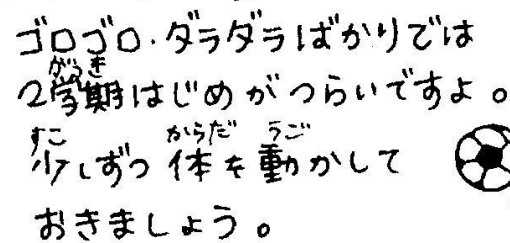 ゴロゴロ・ダラダラばかりでは
2学期はじめがつらいですよ。
少しずつ体を動かして
おきましょう。